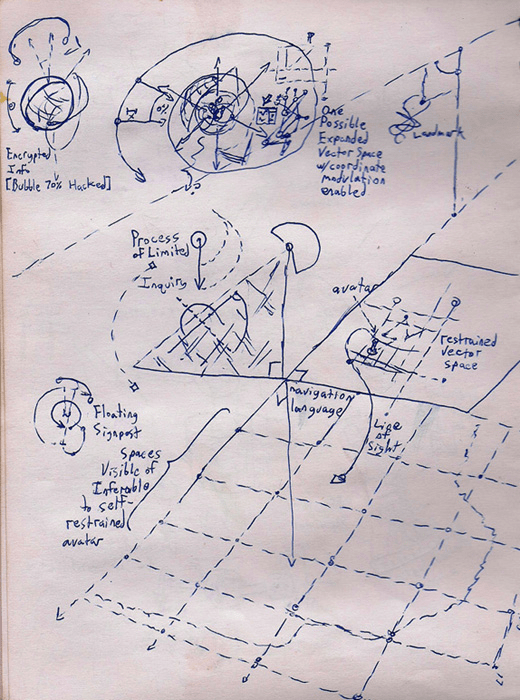 Encrypted
Info
[Bubble 70% Hacked]
0%
One
Possible
Expanded
Vector Space
w/coordinate
modulation
enabled
Landmark
Process
of Limited
Inquiry
avatar
restrained
vector
space
navigation
language
Line
of
Sight
Floating
Signpost
Spaces
Visible of
Inferable
to self-
restrained
avatar